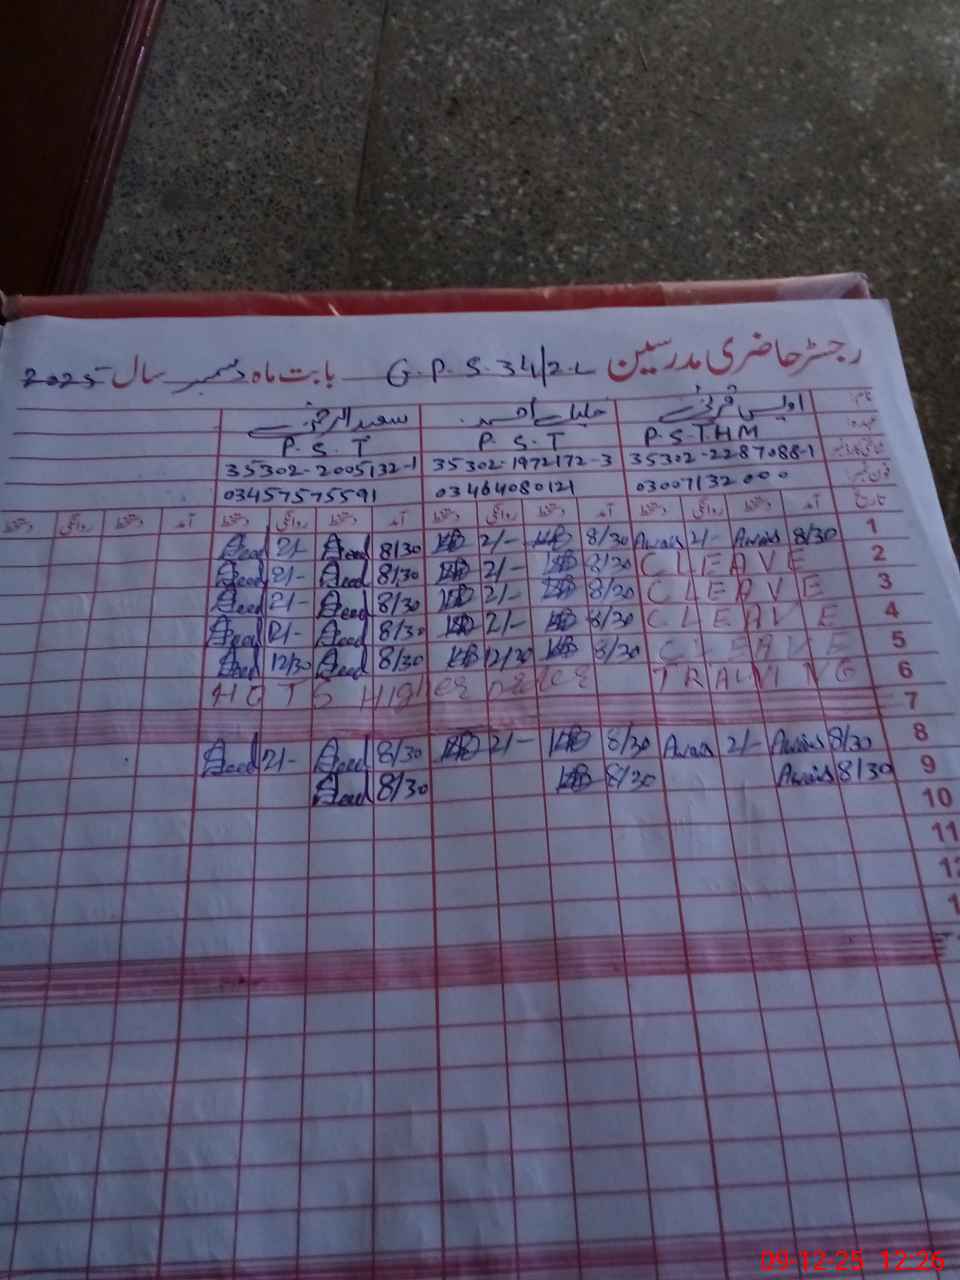 رجسٹر حاضری مدرسین G.P.S 34/2.L بابت ماہ دسمبر سال 2025
نام اویس قرنی خلیل احمد سعید الرحمن
عہدہ P.S.T.HM P.S.T P.S.T
35302-2287088-1 35302-1972172-3 35302-2005132-1
فون نمبر 03007132000 03464080121 03457575591
تاریخ آمد دستخط روانگی دستخط آمد دستخط روانگی دستخط آمد دستخط روانگی دستخط آمد دستخط روانگی دستخط
1 8/30 Awais 2/- Awais 8/30 2/- 8/30 Saeed 2/- Saeed
2 C LEAVE 8/30 2/- 8/30 Saeed 2/- Saeed
3 C LEAVE 8/30 2/- 8/30 Saeed 2/- Saeed
4 C LEAVE 8/30 2/- 8/30 Saeed 2/- Saeed
5 C LEAVE 8/30 12/30 8/30 Saeed 12/30 Saeed
6 TRAINING
7
8 8/30 Awais 2/- Awais 8/30 2/- 8/30 Saeed 2/- Saeed
9 8/30 Awais 8/30 8/30 Saeed
10
11
12
09-12-25 12:26